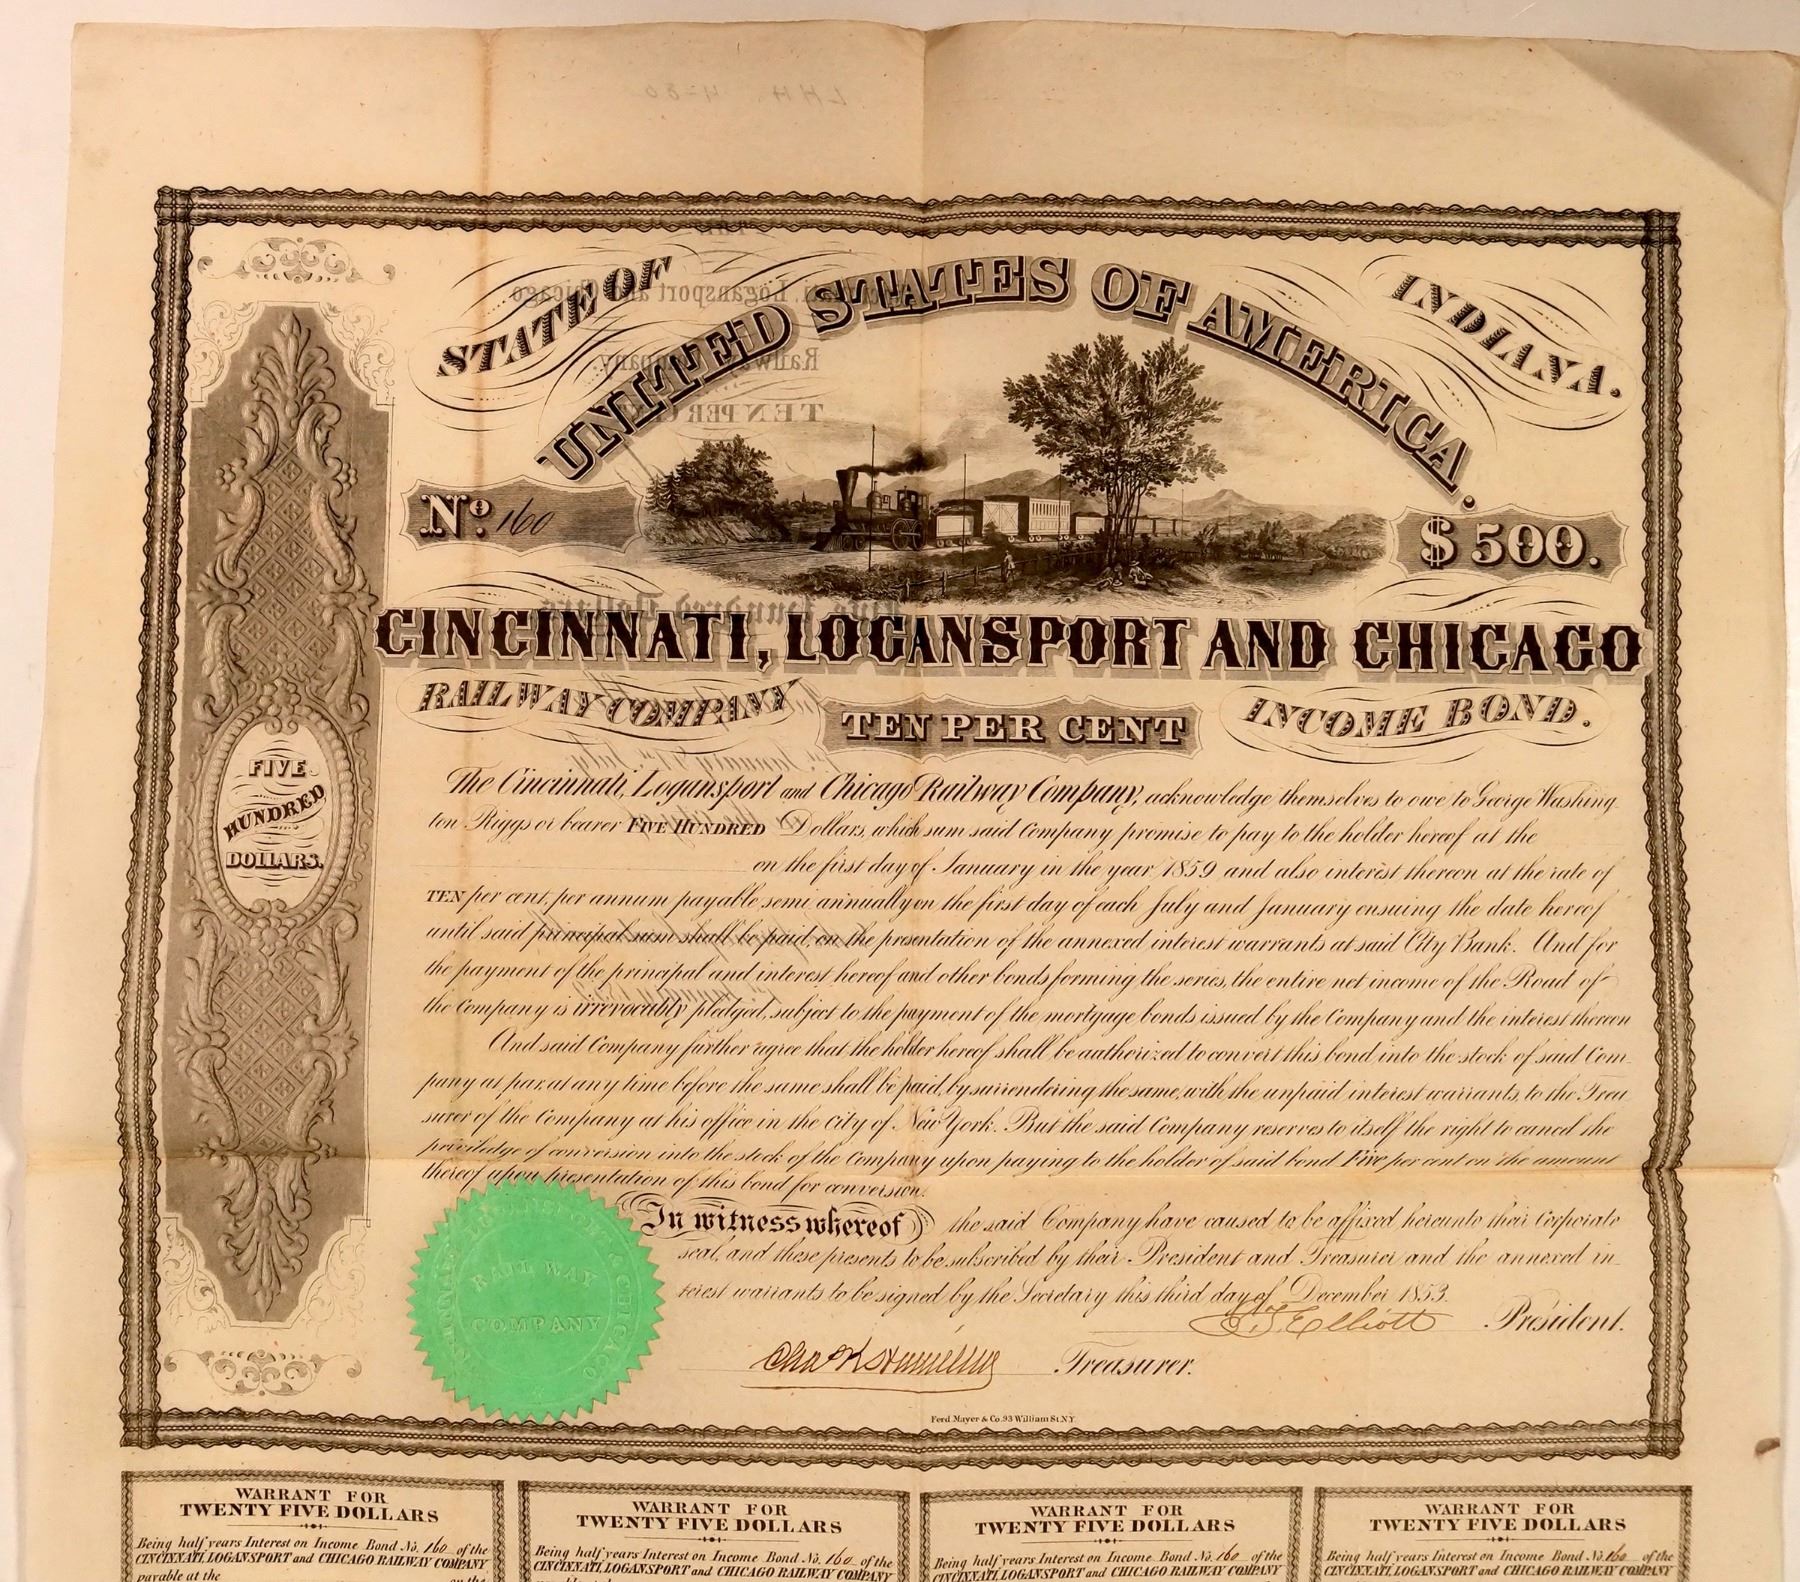 STATE OF
UNITED STATES OF AMERICA.
INDIANA.
No. 160
$500.
CINCINNATI, LOGANSPORT AND CHICAGO
RAILWAY COMPANY
TEN PER CENT
INCOME BOND.
FIVE
HUNDRED
DOLLARS.
The Cincinnati, Logansport and Chicago Railway Company, acknowledge themselves to owe to George Washing
ton Riggs or bearer FIVE HUNDRED Dollars, which sum said Company promise to pay to the holder hereof at the
on the first day of January in the year 1859 and also interest thereon at the rate of
TEN per cent, per annum payable, semi annually on the first day of each July and January ensuing the date hereof
until said principal sum shall be paid, on the presentation of the annexed interest warrants at said City Bank. And for
the payment of the principal and interest hereof and other bonds forming the series, the entire net income of the Road of
the Company is irrevocably pledged, subject to the payment of the mortgage bonds issued by the Company and the interest thereon
And said Company further agree that the holder hereof shall be authorized to convert this bond into the stock of said Com-
pany at par, at any time before the same shall be paid, by surrendering the same, with the unpaid interest warrants, to the Trea
surer of the Company at his office in the city of New York. But the said Company reserves to itself the right to cancel the
priviledge of conversion into the stock of the Company upon paying to the holder of said bond Five per cent on the amount
thereof upon presentation of this bond for conversion.
In witness whereof the said Company have caused to be affixed hereunto their Corporate
seal, and these presents to be subscribed by their President and Treasurer and the annexed in-
terest warrants to be signed by the Secretary this third day of December 1853.
Elliott President.
Treasurer.
RAILWAY
COMPANY
Ferd Mayer & Co. 93 William St. N.Y.
WARRANT FOR
TWENTY FIVE DOLLARS
Being half years Interest on Income Bond No. 160 of the
CINCINNATI, LOGANSPORT and CHICAGO RAILWAY COMPANY
payable at the on the
WARRANT FOR
TWENTY FIVE DOLLARS
Being half years Interest on Income Bond No. 160 of the
CINCINNATI, LOGANSPORT and CHICAGO RAILWAY COMPANY
WARRANT FOR
TWENTY FIVE DOLLARS
Being half years Interest on Income Bond No. 160 of the
CINCINNATI, LOGANSPORT and CHICAGO RAILWAY COMPANY
WARRANT FOR
TWENTY FIVE DOLLARS
Being half years Interest on Income Bond No. 160 of the
CINCINNATI, LOGANSPORT and CHICAGO RAILWAY COMPANY